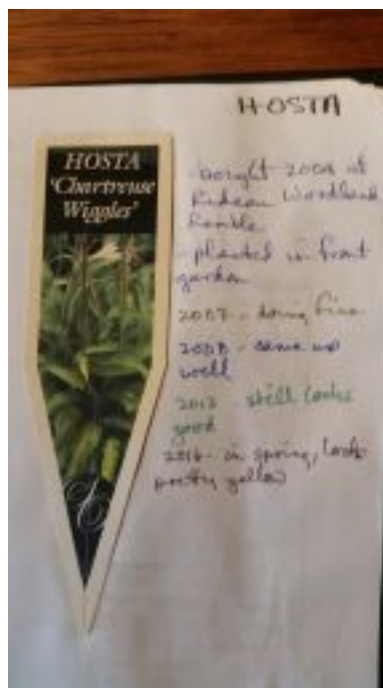 HOSTA
HOSTA
'Chartreuse
Wiggles'
- bought 2004 at
Rideau Woodland
Ramble
- planted in front
garden
2007 - doing fine
2008 - came up
well
2012 still looks
good
2016 - in spring, looks
pretty yellow